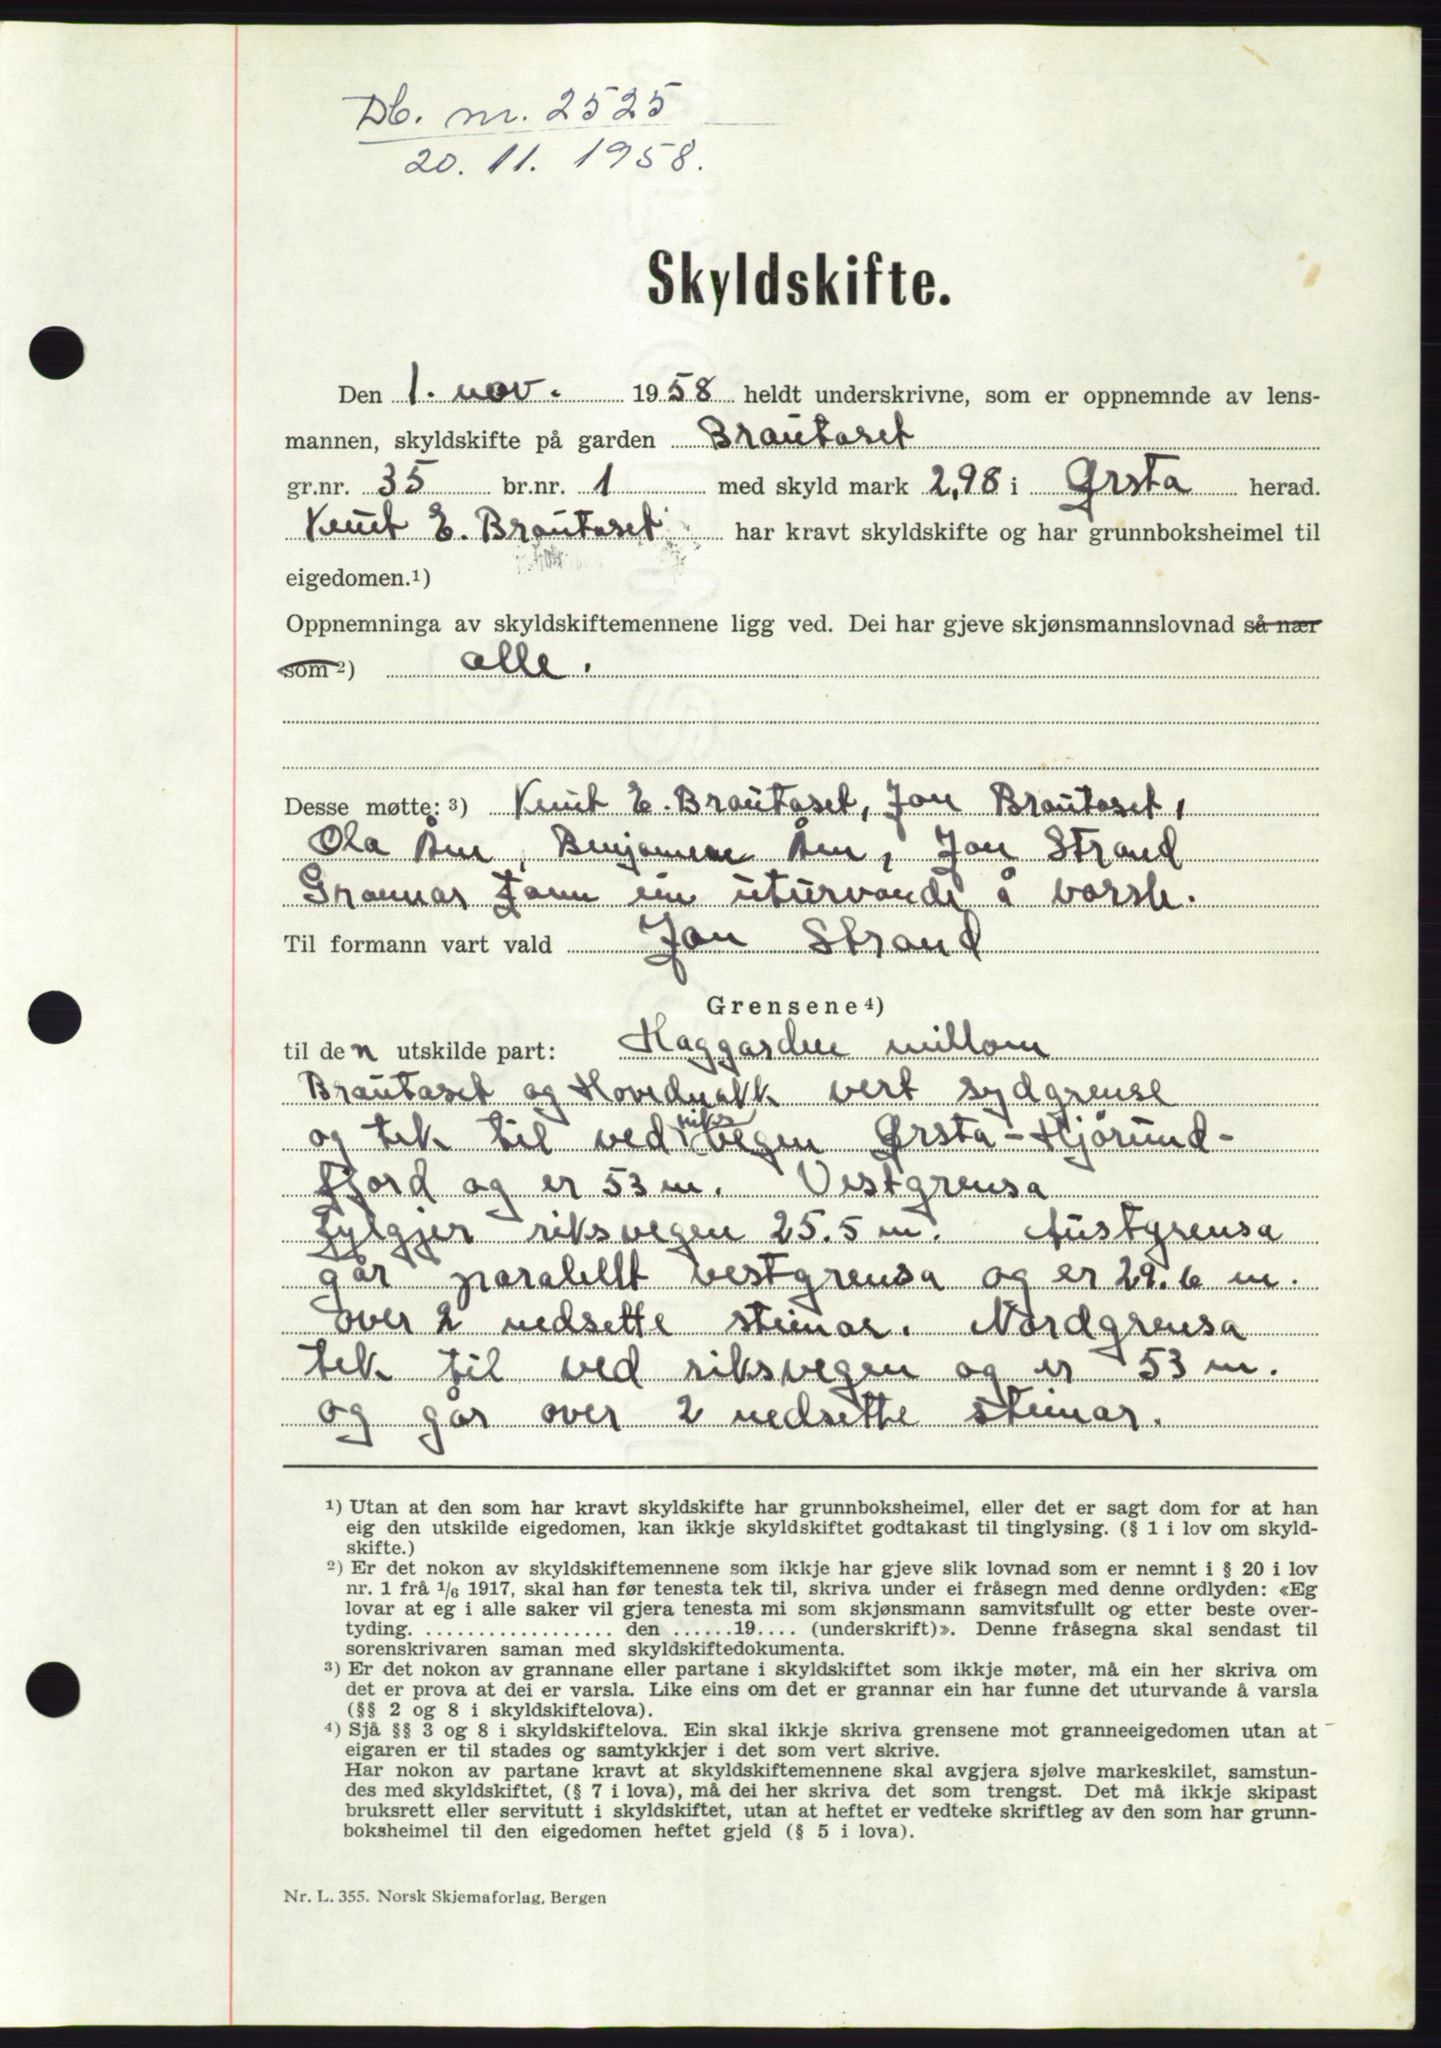 Db. nr. 2525
20. 11. 1958.
Skyldskifte.
Den 1. nov. 1958 heldt underskrivne, som er oppnemnde av lens-
mannen, skyldskifte på garden Brautaset
gr.nr. 35 br.nr. 1 med skyld mark 2,98 i Ørsta herad.
Knut E. Brautaset har kravt skyldskifte og har grunnboksheimel til
eigedomen.1)
Oppnemninga av skyldskiftemennene ligg ved. Dei har gjeve skjønsmannslovnad så nær
som 2) alle.
Desse møtte: 3) Knut E. Brautaset, Jon Brautaset,
Ola Åm, Benjamin Åm, Jon Strand
Grannar fann ein uturvande å varsle.
Til formann vart vald Jon Strand
Grensene 4)
til den utskilde part: Haggarden millom
Brautaset og Hovednakk vert sydgrense
og tek til ved riksvegen Ørsta-Hjørund-
fjord og er 53 m. Vestgrensa
fylgjer riksvegen 25.5 m. Austgrensa
går paralellt vestgrensa og er 29.6 m.
over 2 nedsette steinar. Nordgrensa
tek til ved riksvegen og er 53 m.
og går over 2 nedsette steinar.
1) Utan at den som har kravt skyldskifte har grunnboksheimel, eller det er sagt dom for at han
eig den utskilde eigedomen, kan ikkje skyldskiftet godtakast til tinglysing. (§ 1 i lov om skyld-
skifte.)
2) Er det nokon av skyldskiftemennene som ikkje har gjeve slik lovnad som er nemnt i § 20 i lov
nr. 1 frå 1/6 1917, skal han før tenesta tek til, skriva under ei fråsegn med denne ordlyden: «Eg
lovar at eg i alle saker vil gjera tenesta mi som skjønsmann samvitsfullt og etter beste over-
tyding. .................. den ......19.... (underskrift)». Denne fråsegna skal sendast til
sorenskrivaren saman med skyldskiftedokumenta.
3) Er det nokon av grannane eller partane i skyldskiftet som ikkje møter, må ein her skriva om
det er prova at dei er varsla. Like eins om det er grannar ein har funne det uturvande å varsla
(§§ 2 og 8 i skyldskiftelova).
4) Sjå §§ 3 og 8 i skyldskiftelova. Ein skal ikkje skriva grensene mot granneeigedomen utan at
eigaren er til stades og samtykkjer i det som vert skrive.
Har nokon av partane kravt at skyldskiftemennene skal avgjera sjølve markeskilet, samstun-
des med skyldskiftet, (§ 7 i lova), må dei her skriva det som trengst. Det må ikkje skipast
bruksrett eller servitutt i skyldskiftet, utan at heftet er vedteke skriftleg av den som har grunn-
boksheimel til den eigedomen heftet gjeld (§ 5 i lova).
Nr. L. 355. Norsk Skjemaforlag, Bergen